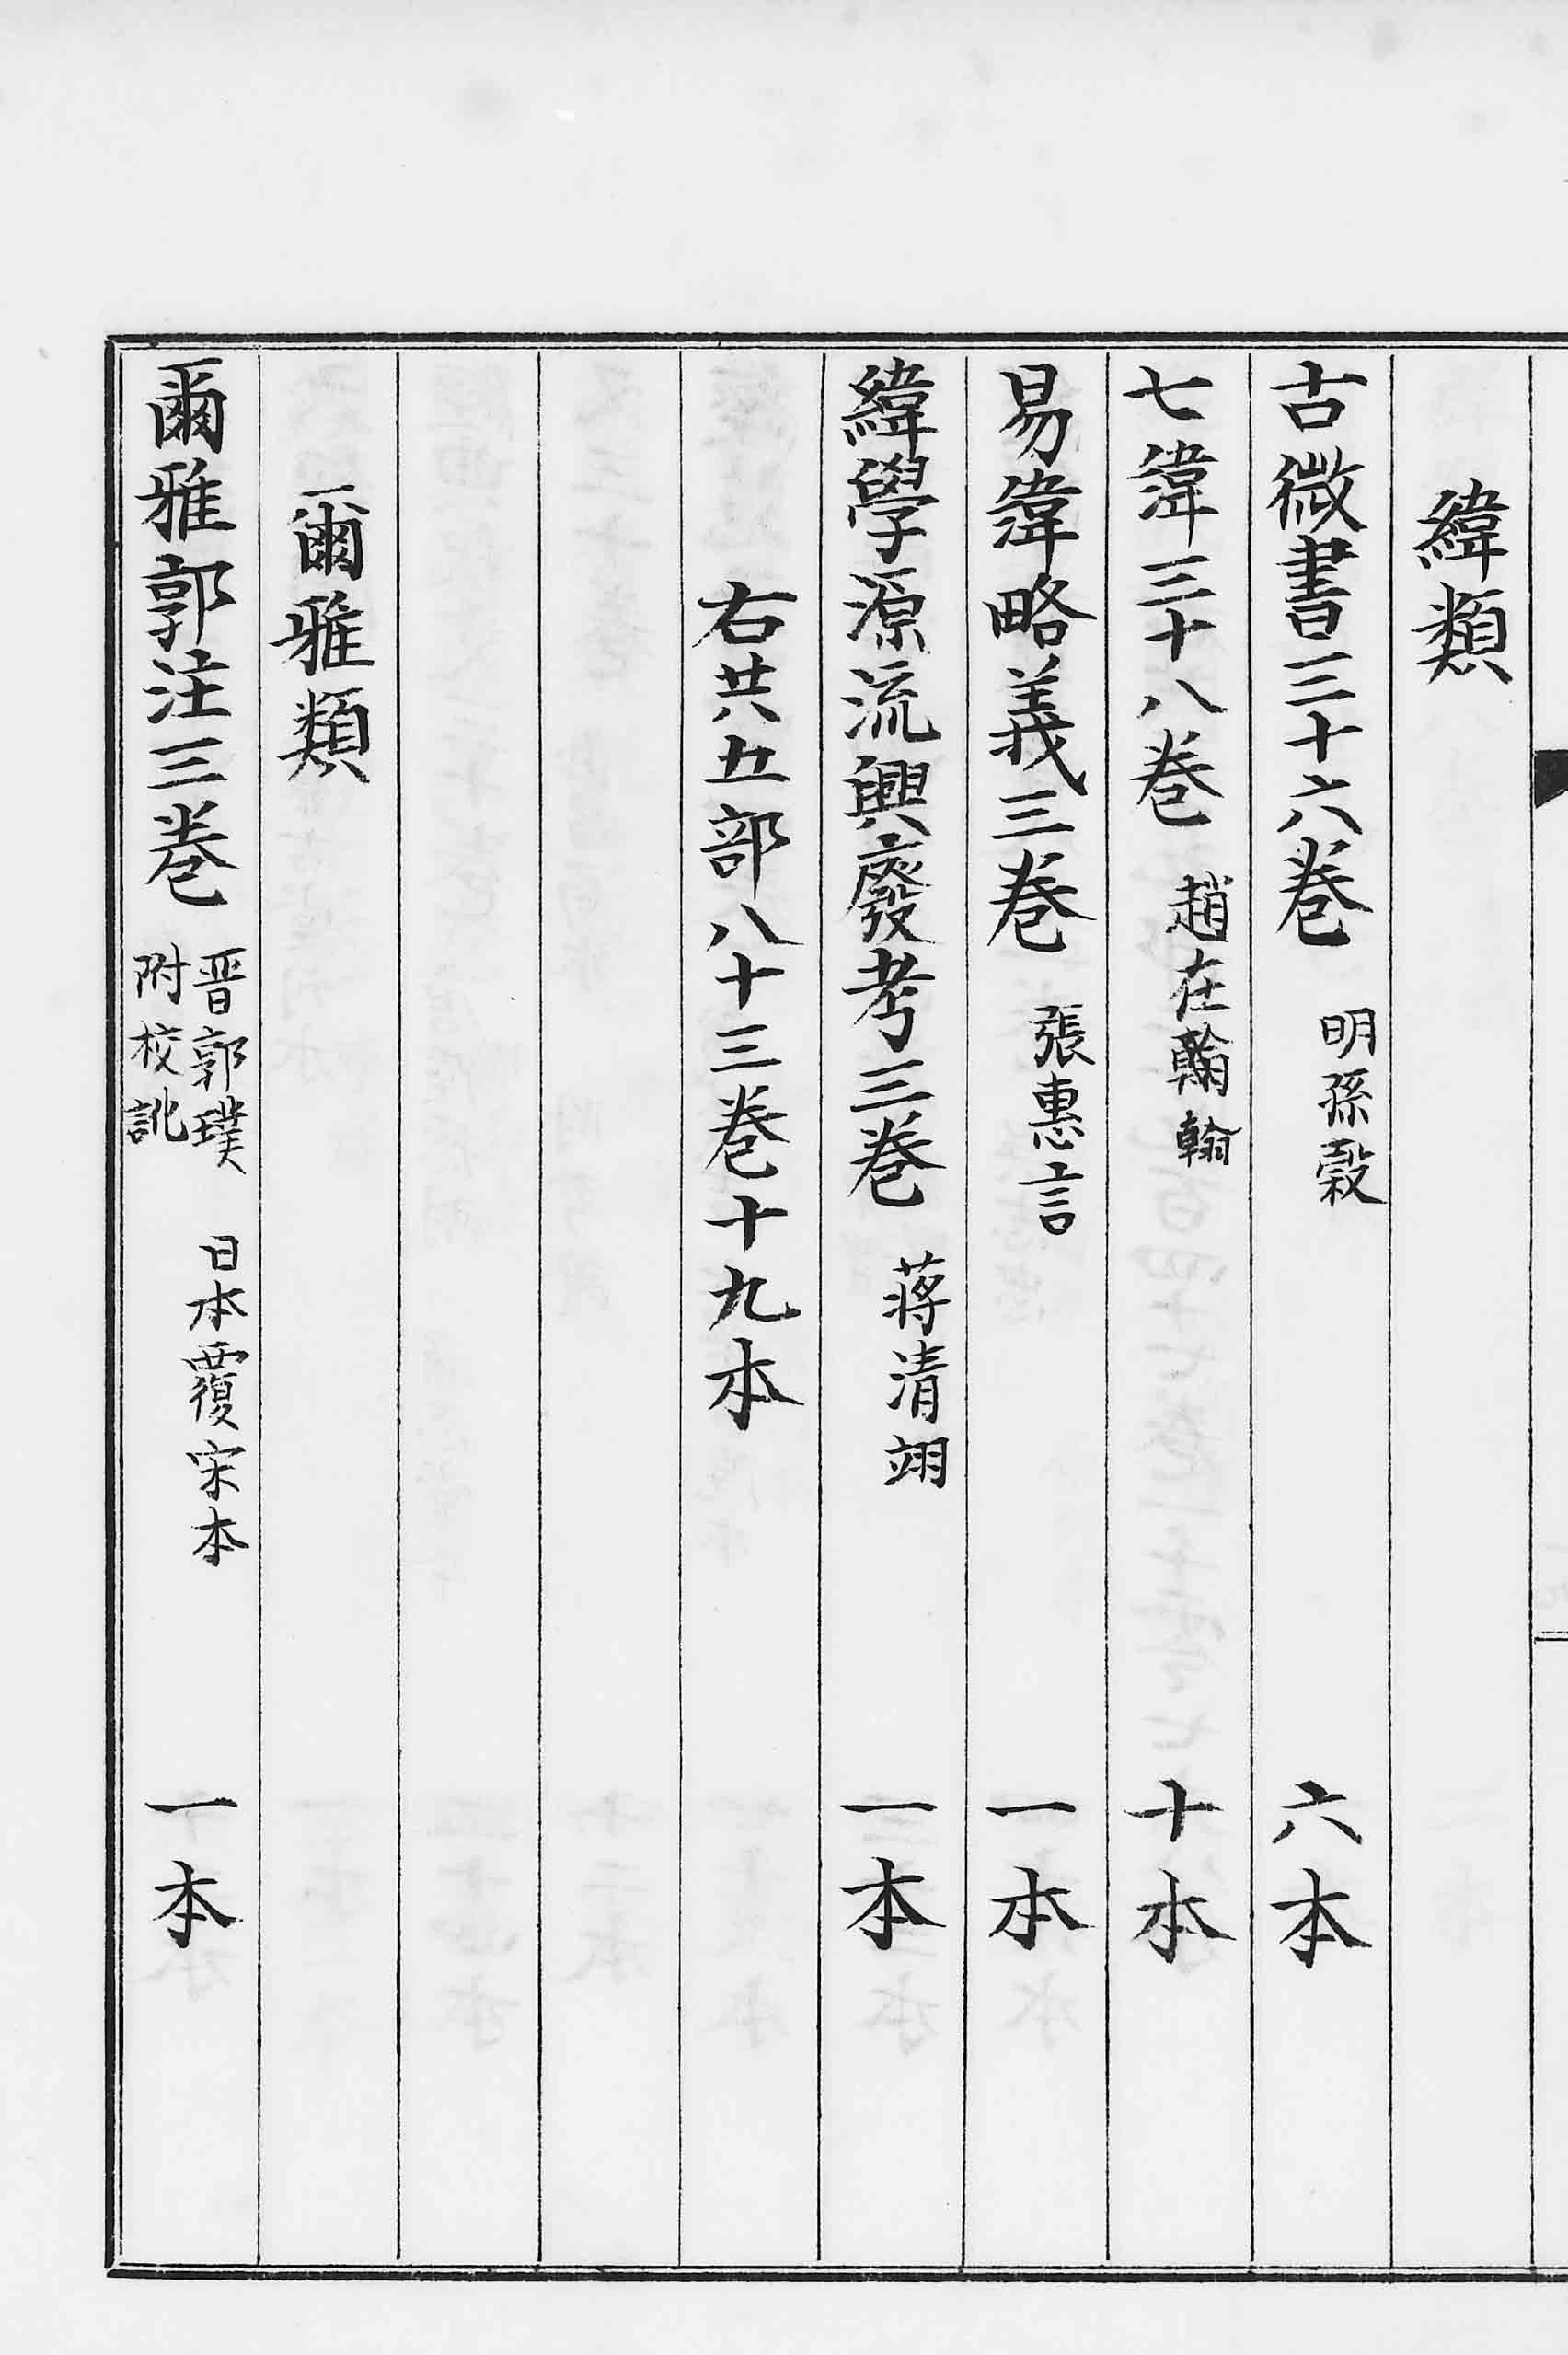 緯類
古微書三十六卷 明孫瑴 六本
七緯三十八卷 趙在翰 十本
易緯略義三卷 張惠言 一本
緯學源流興廢考三卷 蔣清翊 一本
右共五部八十三卷十九本
爾雅類
爾雅郭注三卷 晋郭璞 附校訛 日本覆宋本 一本